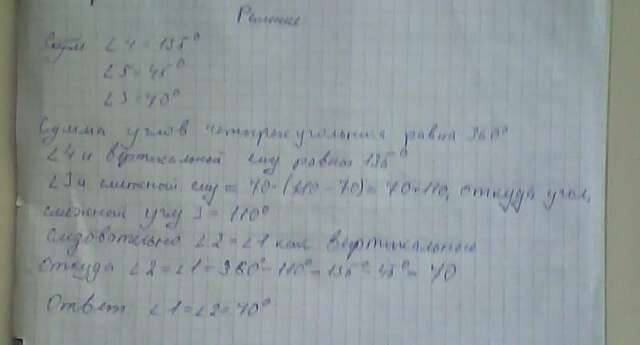 Решение
∠4 = 135°
∠5 = 45°
∠3 = 70°
Сумма углов четырехугольника равна 360°
∠4 и вертикальный ему равны 135°
∠3 и смежный ему = 70+(180-70) = 70+110, откуда угол,
смежный углу 3 = 110°
следовательно ∠2=∠1 как вертикальные
Откуда ∠2=∠1=360°-110°-135°-45°=70
Ответ ∠1=∠2=70°